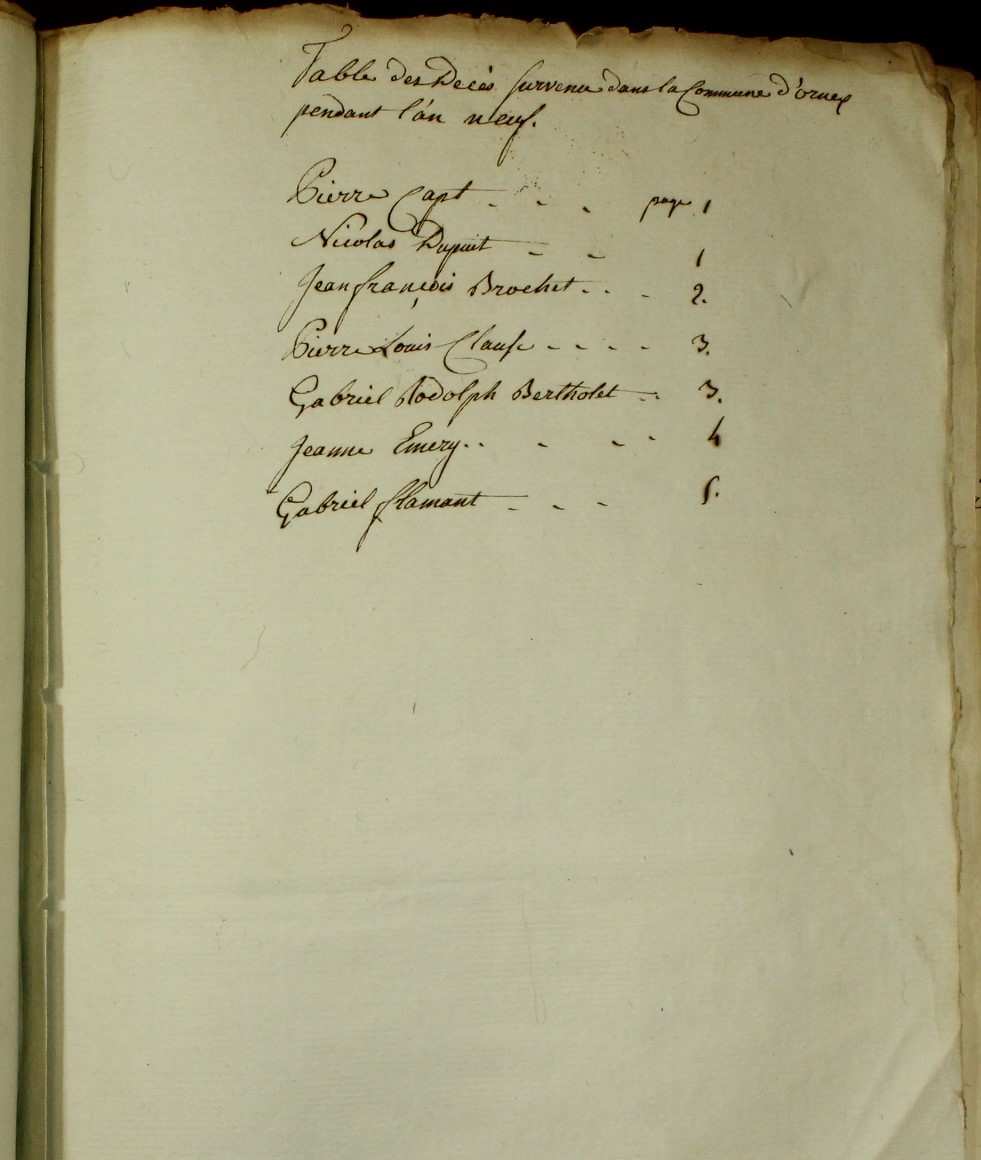 Table des Decès survenu dans la Commune d'ornex
pendant l'an neuf.
Pierre Capt - - - page 1
Nicolas Dupuit - - 1
Jean françois Brochet . . - 2.
Pierre Louis Clause - - - - 3.
Gabriel Rodolph Bertholet - . 3.
Jeanne Emery . . - - - 4
Gabriel flamant - - - 5.